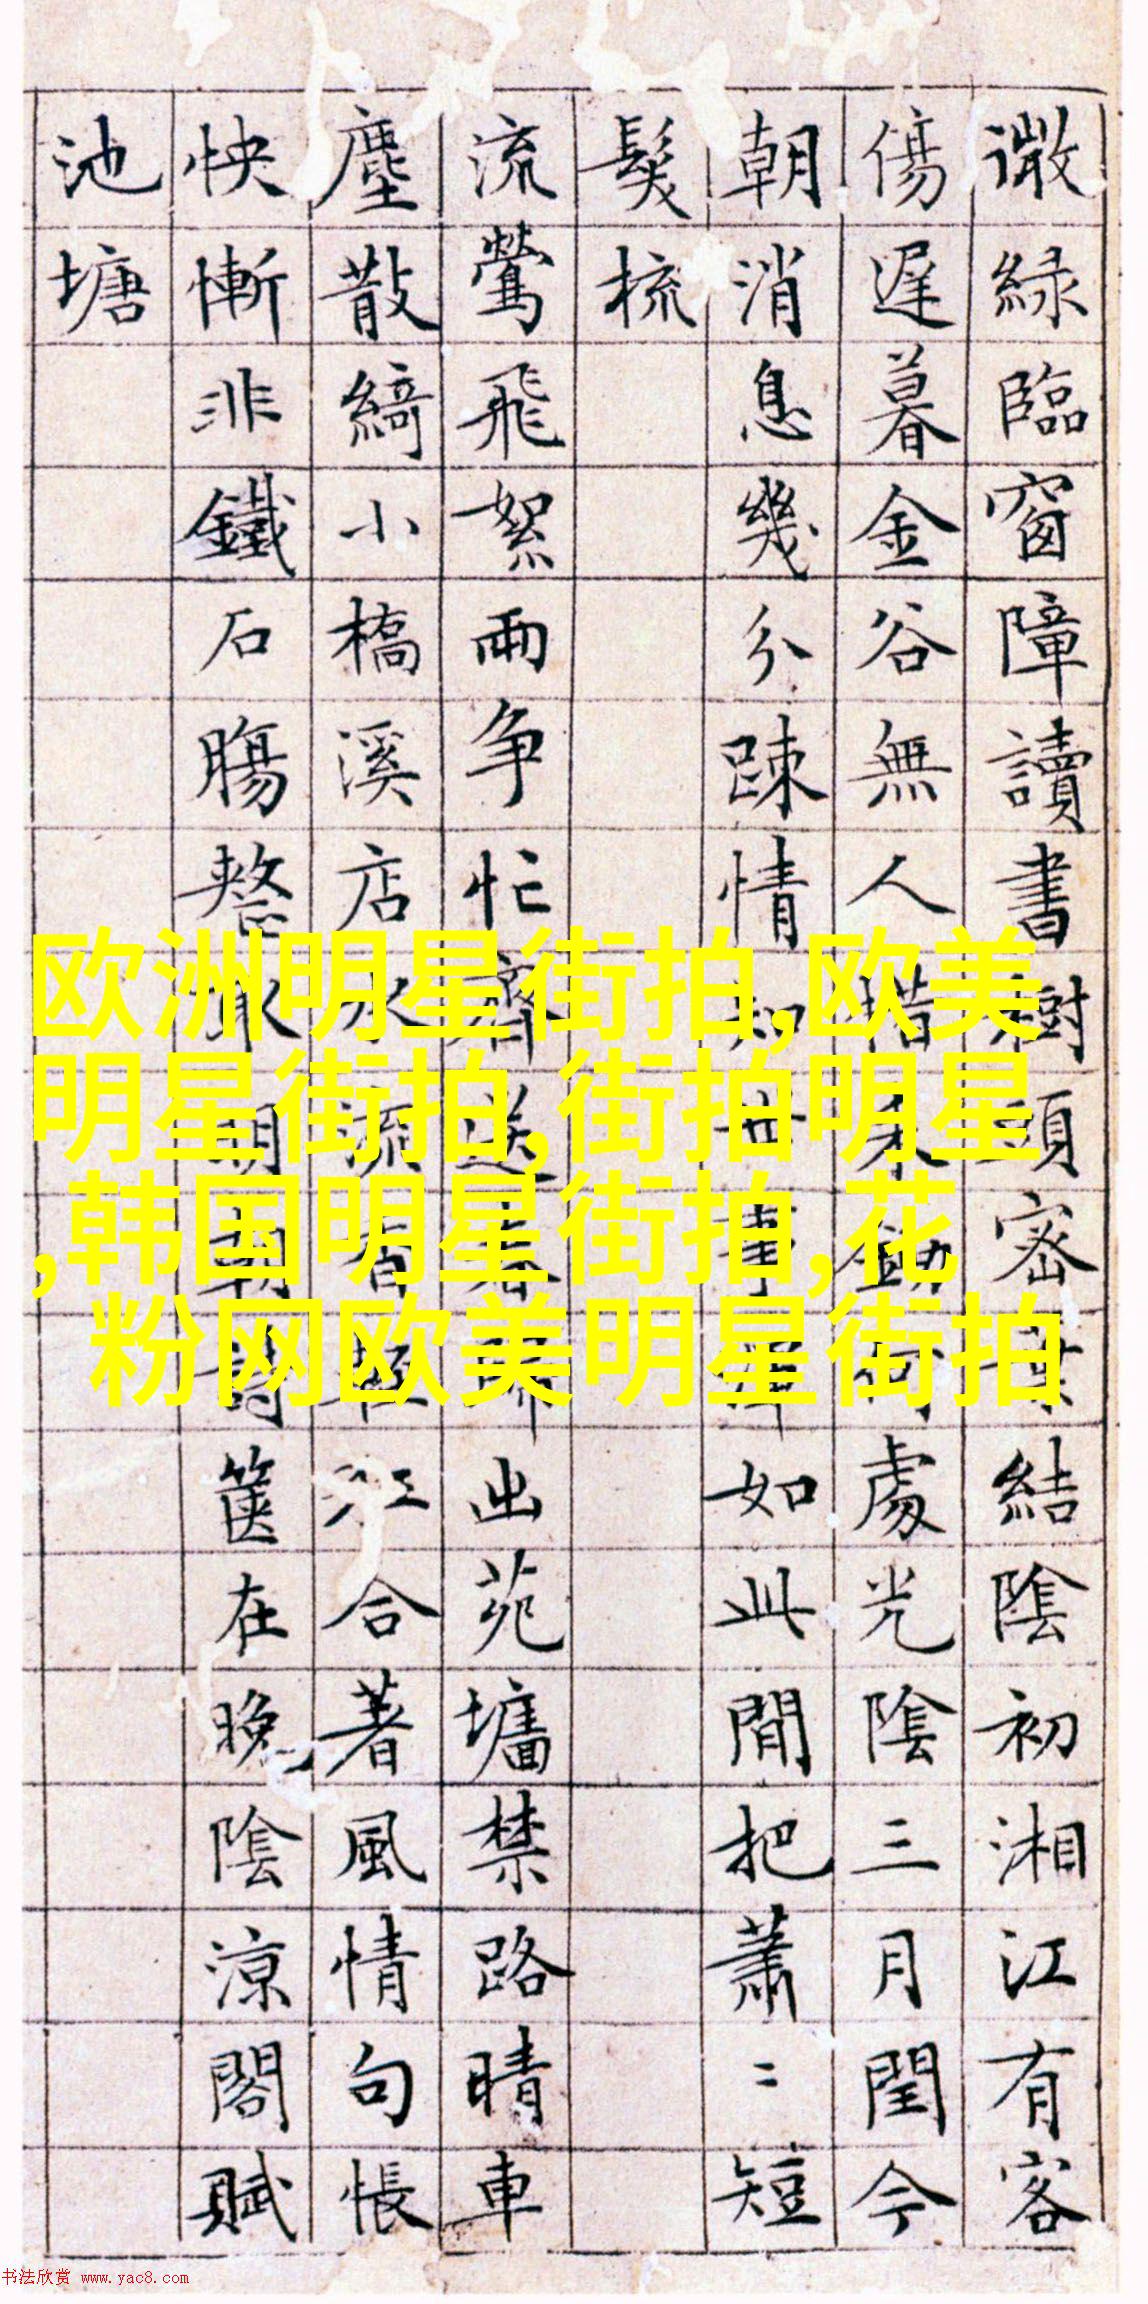 微綠臨窗障讀書樹頭密葉結陰初湘江有客
傷遲暮金谷無人惜處光陰三月閏今
朝消息幾分踈情知世事渾如此間把蕭〻短
髮梳
流鶯飛絮兩争忙齊送春歸出苑墻禁路晴車
塵散綺小橋溪店水流香江合著風情句悵
怏慚非鐵石腸整取明朝詩篋在晚陰涼閣賦
池塘
欧洲明星街拍,欧美
明星街拍,街拍明星
,韩国明星街拍,花
粉网欧美明星街拍
书法欣赏 www.yac8.com